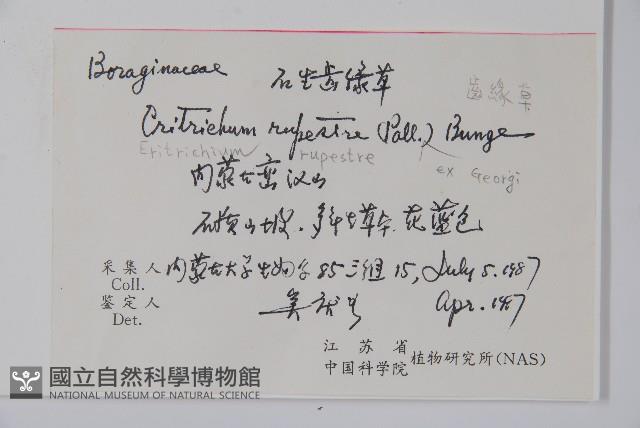 Boraginaceae 石生齿缘草
齒緣草
Eritrichum rupestre (Pall.) Bunge
Eritrichium rupestre ex Georgi
内蒙古蛮汉山
山坡. 多年生草本. 花蓝色
采集人 内蒙古大学生物系85三组 15, July 5. 1987
Coll.
鉴定人 Apr. 1987
Det.
江苏省
中国科学院植物研究所(NAS)
國立自然科學博物館
NATIONAL MUSEUM OF NATURAL SCIENCE